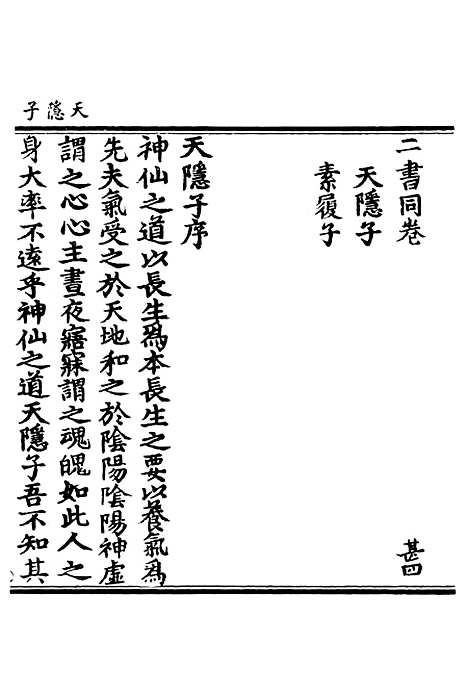 天隱子
二書同卷 甚四
天隱子
素履子
天隱子序
神仙之道以長生爲本長生之要以養氣爲
先夫氣受之於天地和之於陰陽陰陽神虛
謂之心心主晝夜寤寐謂之魂魄如此人之
身大率不遠乎神仙之道天隱子吾不知其